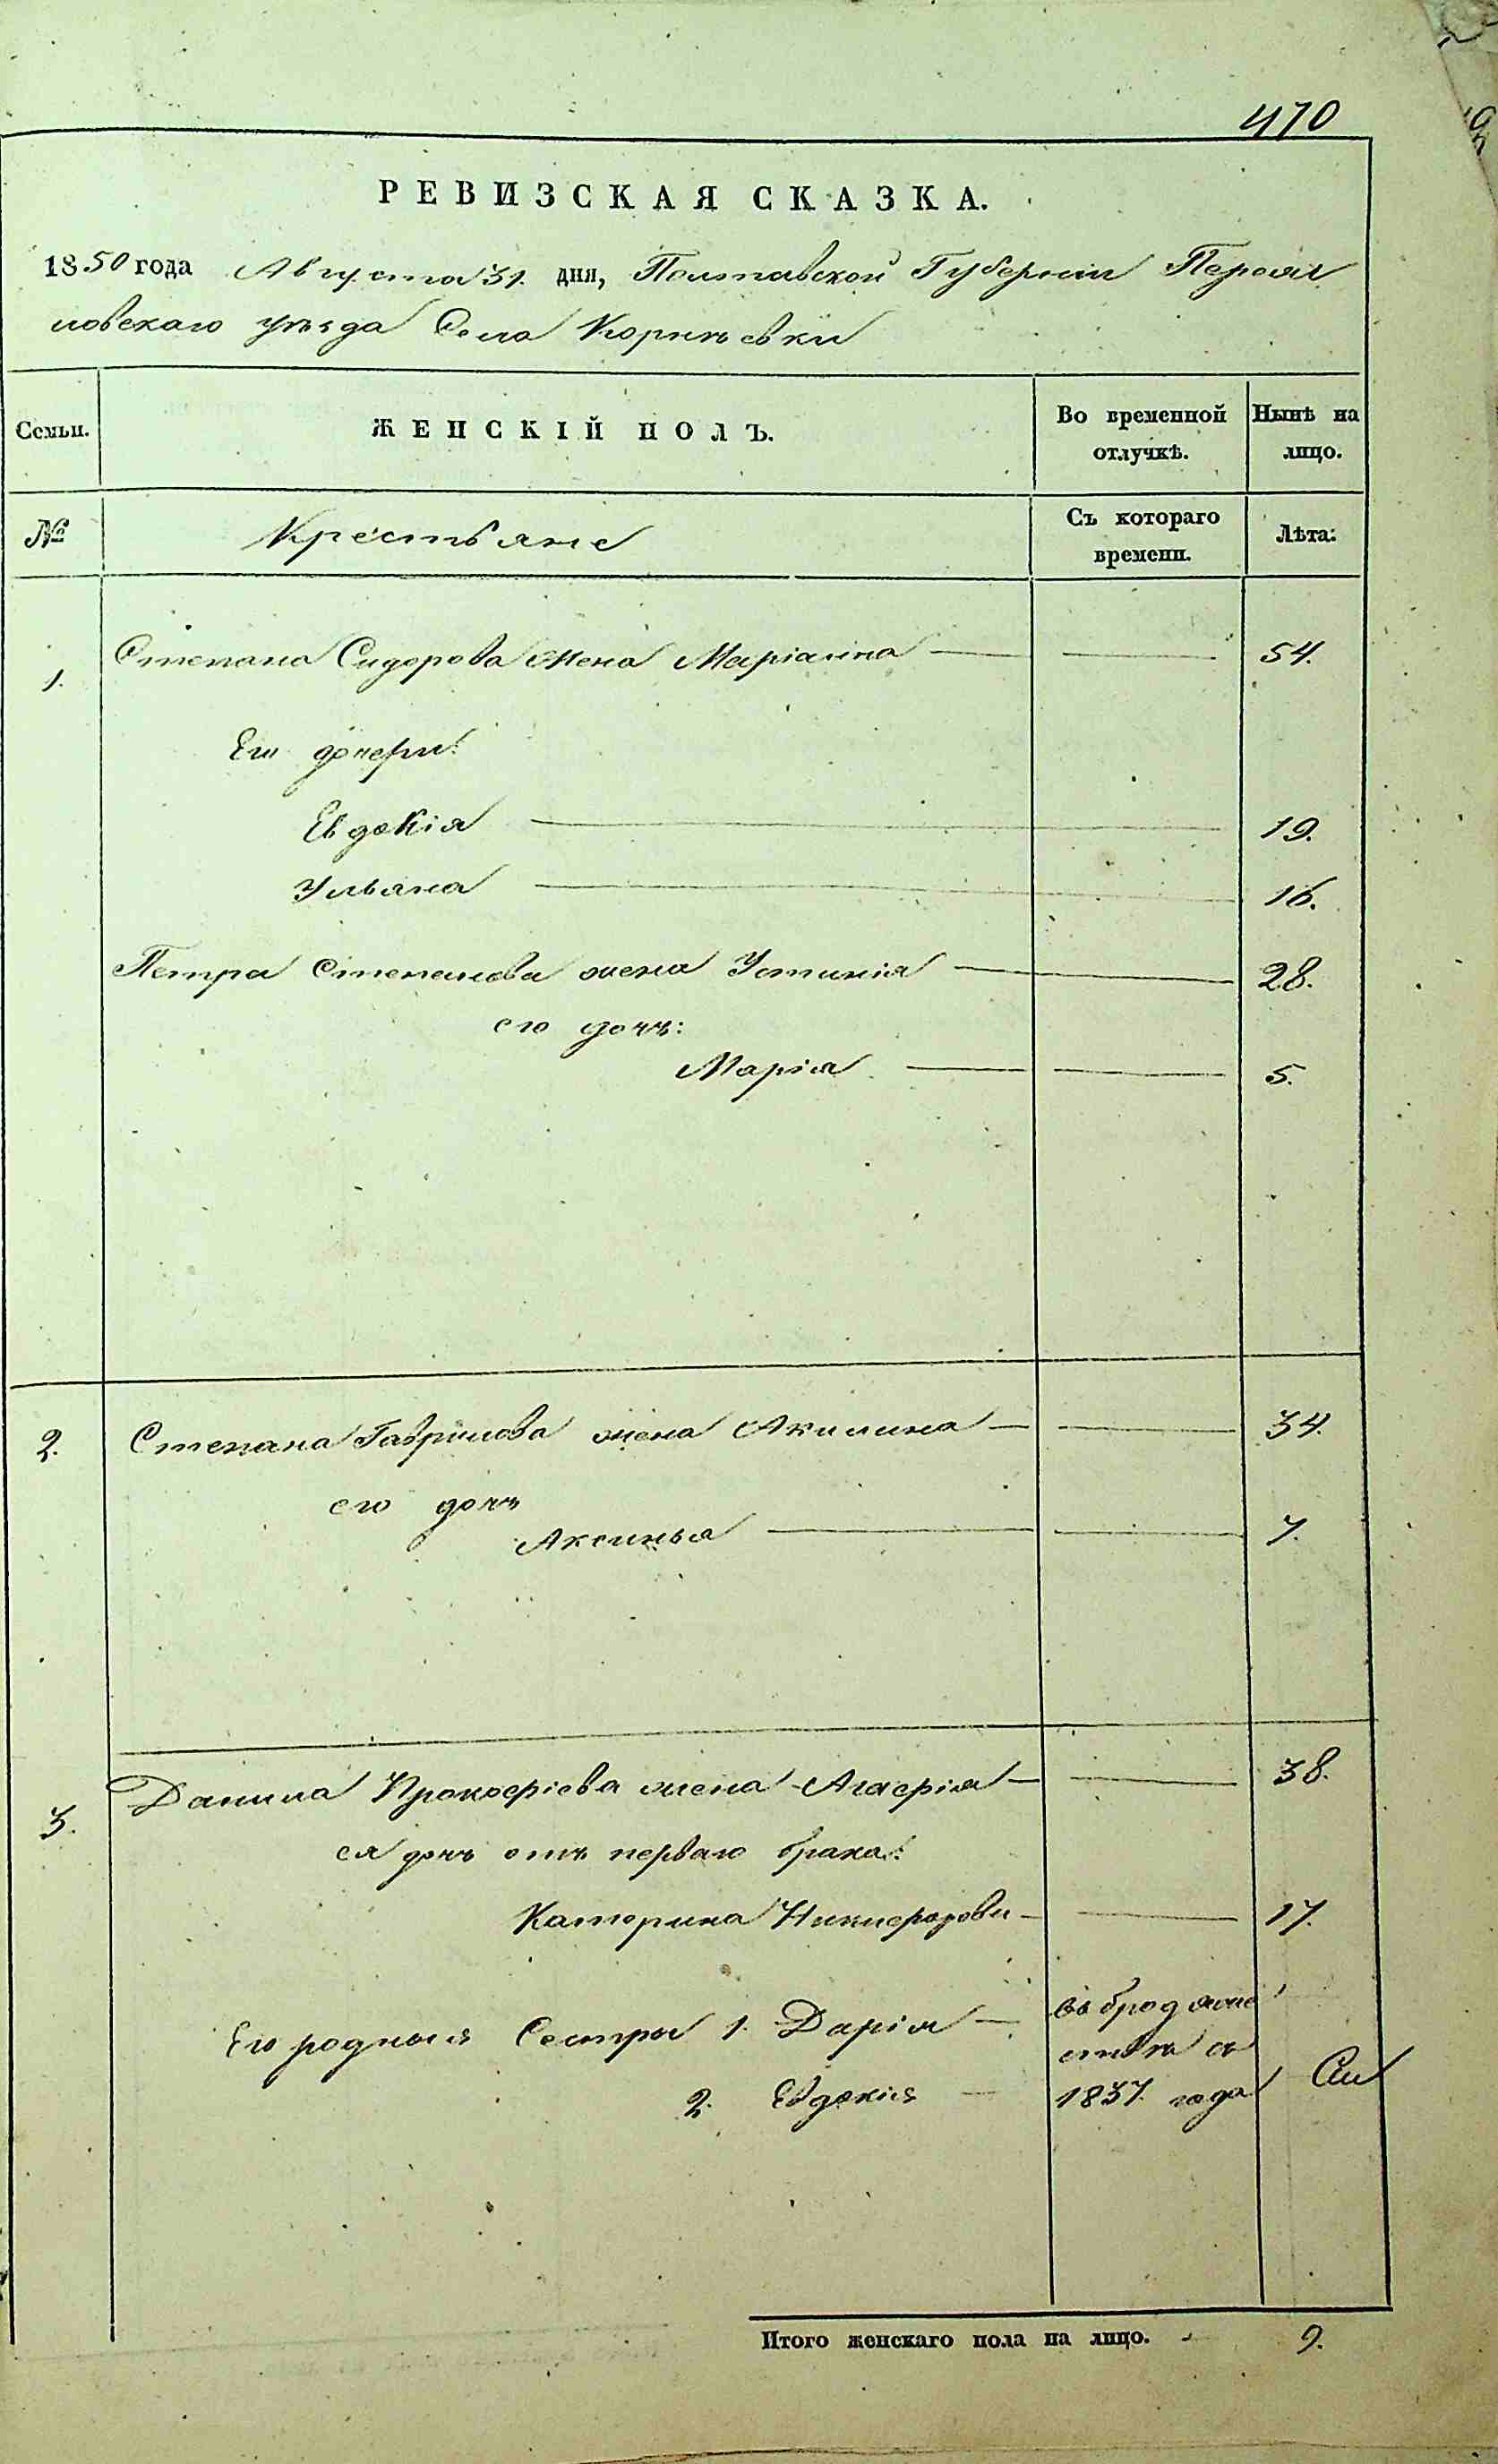 470
РЕВИЗСКАЯ СКАЗКА.
1850 года Августа 31. дня, Полтавской Губерніи Переяс
ловскаго уѣзда Села Корнѣевки
Семьи. ЖЕНСКІЙ ПОЛЪ. Во временной отлучкѣ. Нынѣ на лицо.
№ Крестьяне Съ котораго времени. Лѣта:
1. Степана Сидорова жена Маріанна — — 54.
Его дочери:
Евдокія — — 19.
Ульяна — — 16.
Петра Степанова жена Устинія — — 28.
его дочь:
Марія — — 5.
2. Степана Гаврилова жена Акилина — — 34.
его дочь
Аксинья — — 7.
3. Данила Прокофіева жена Агафія — — 38.
ея дочь отъ перваго брака:
Катерина Никифорова — — 17.
Его родныя Сестры 1. Дарія — въ бродяже
ствѣ съ
2. Евдокія — 1837. года
Итого женскаго пола на лицо. 9.